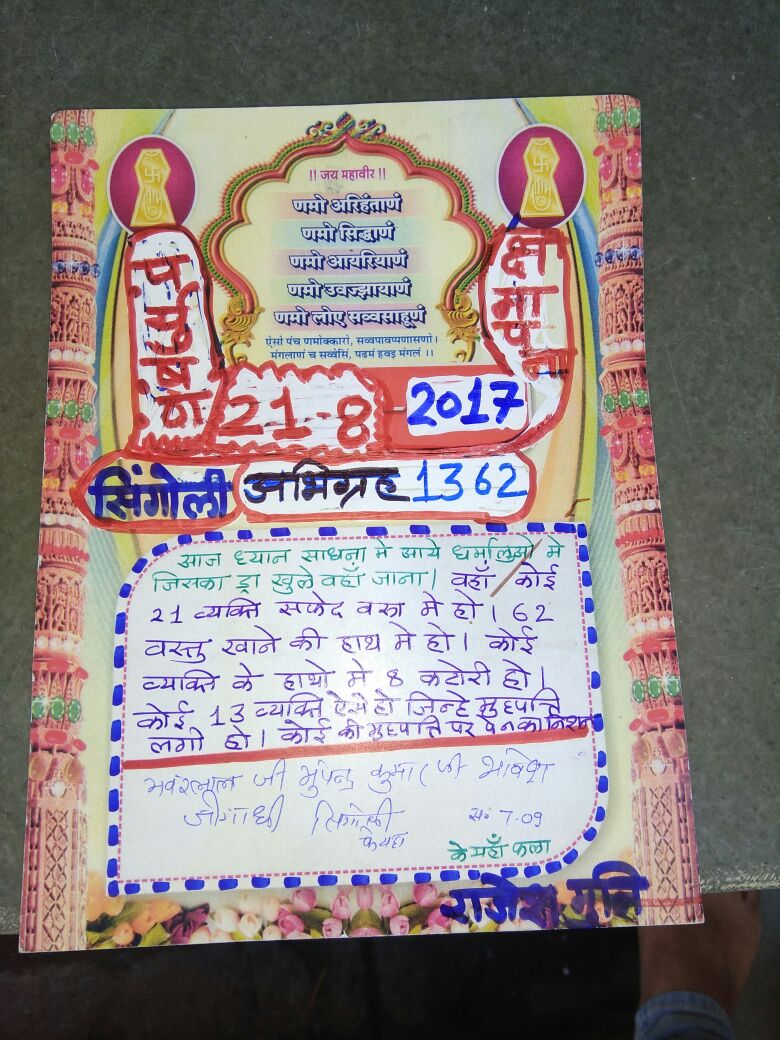 !! जय महावीर !!
णमो अरिहंताणं
णमो सिद्धाणं
णमो आयरियाणं
णमो उवज्झायाणं
णमो लोए सव्वसाहूणं
ऐसो पंच णमोक्कारो, सव्वपावप्पणासणो।
मंगलाणं च सव्वेसिं, पढमं हवइ मंगलं ।।
क्षमापना
21-8-2017
सिंगोली अभिग्रह 1362
आज ध्यान साधना मे आये धर्मालुओ मे
जिसका ड्रा खुले वहाँ जाना। वहाँ कोई
21 व्यक्ति सफेद वस्त्र मे हो। 62
वस्तु खाने की हाथ मे हो। कोई
व्यक्ति के हाथो मे 8 कटोरी हो।
कोई 13 व्यक्ति ऐसे हो जिन्हे मुहपत्ति
लगी हो। कोई की मुहपत्ति पर पेन का निशान
भवरलाल जी भुपेन्द्र कुमार जी
सिंगोली स. 7-09
के यहाँ फला
राजेश मुनि